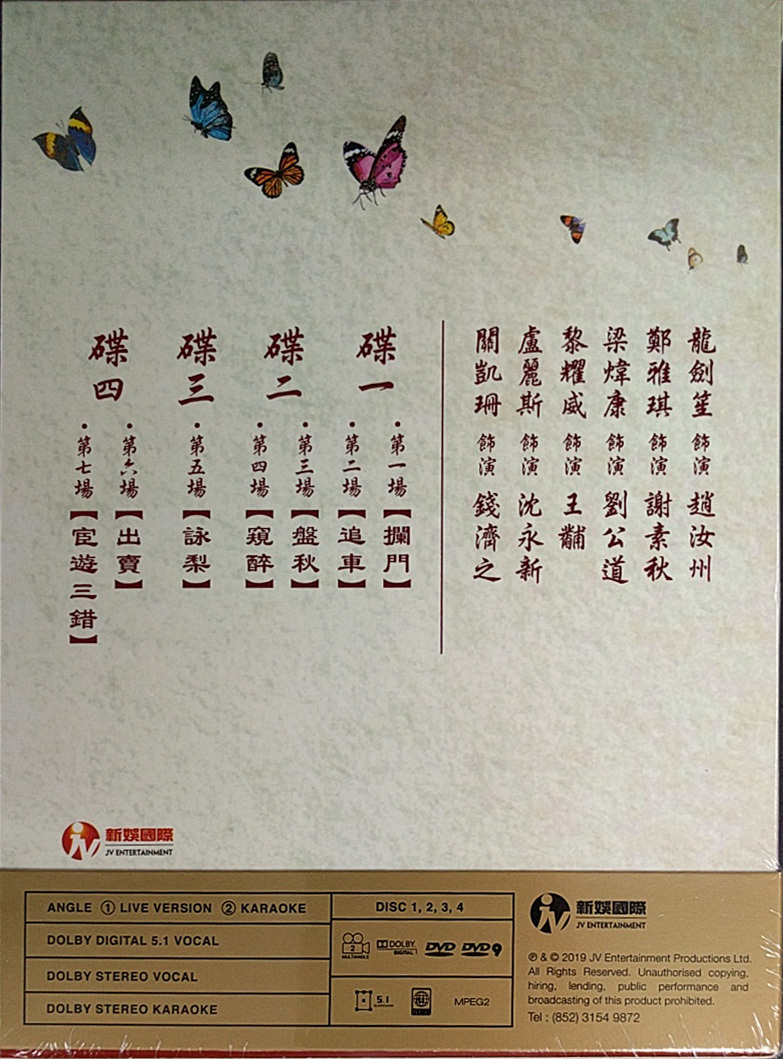 龍劍笙 飾演 趙汝州
鄭雅琪 飾演 謝素秋
梁煒康 飾演 劉公道
黎耀威 飾演 王黼
盧麗斯 飾演 沈永新
關凱珊 飾演 錢濟之
碟一
・第一場【攔門】
・第二場【追車】
碟二
・第三場【盤秋】
・第四場【窺醉】
碟三
・第五場【詠梨】
碟四
・第六場【出賣】
・第七場【宦遊三錯】
新娛國際
JV ENTERTAINMENT
ANGLE ① LIVE VERSION ② KARAOKE
DOLBY DIGITAL 5.1 VOCAL
DOLBY STEREO VOCAL
DOLBY STEREO KARAOKE
DISC 1, 2, 3, 4
2
MULTIANGLE
DOLBY
DIGITAL
DVD
DVD 9
5.1
MPEG2
新娛國際
JV ENTERTAINMENT
℗ & © 2019 JV Entertainment Productions Ltd.
All Rights Reserved. Unauthorised copying,
hiring, lending, public performance and
broadcasting of this product prohibited.
Tel : (852) 3154 9872